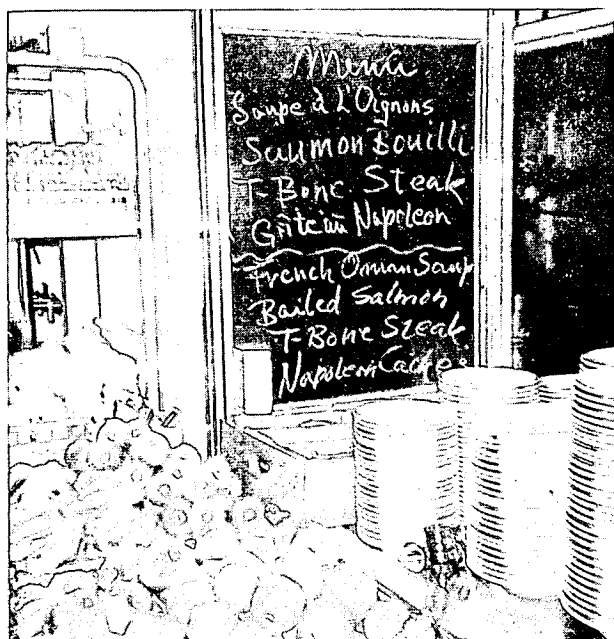 Menu
Soupe à L'Oignons
Saumon Bouilli
T-Bone Steak
Gâteau Napoleon
French Onion Soup
Boiled Salmon
T-Bone Steak
Napoleon Cake